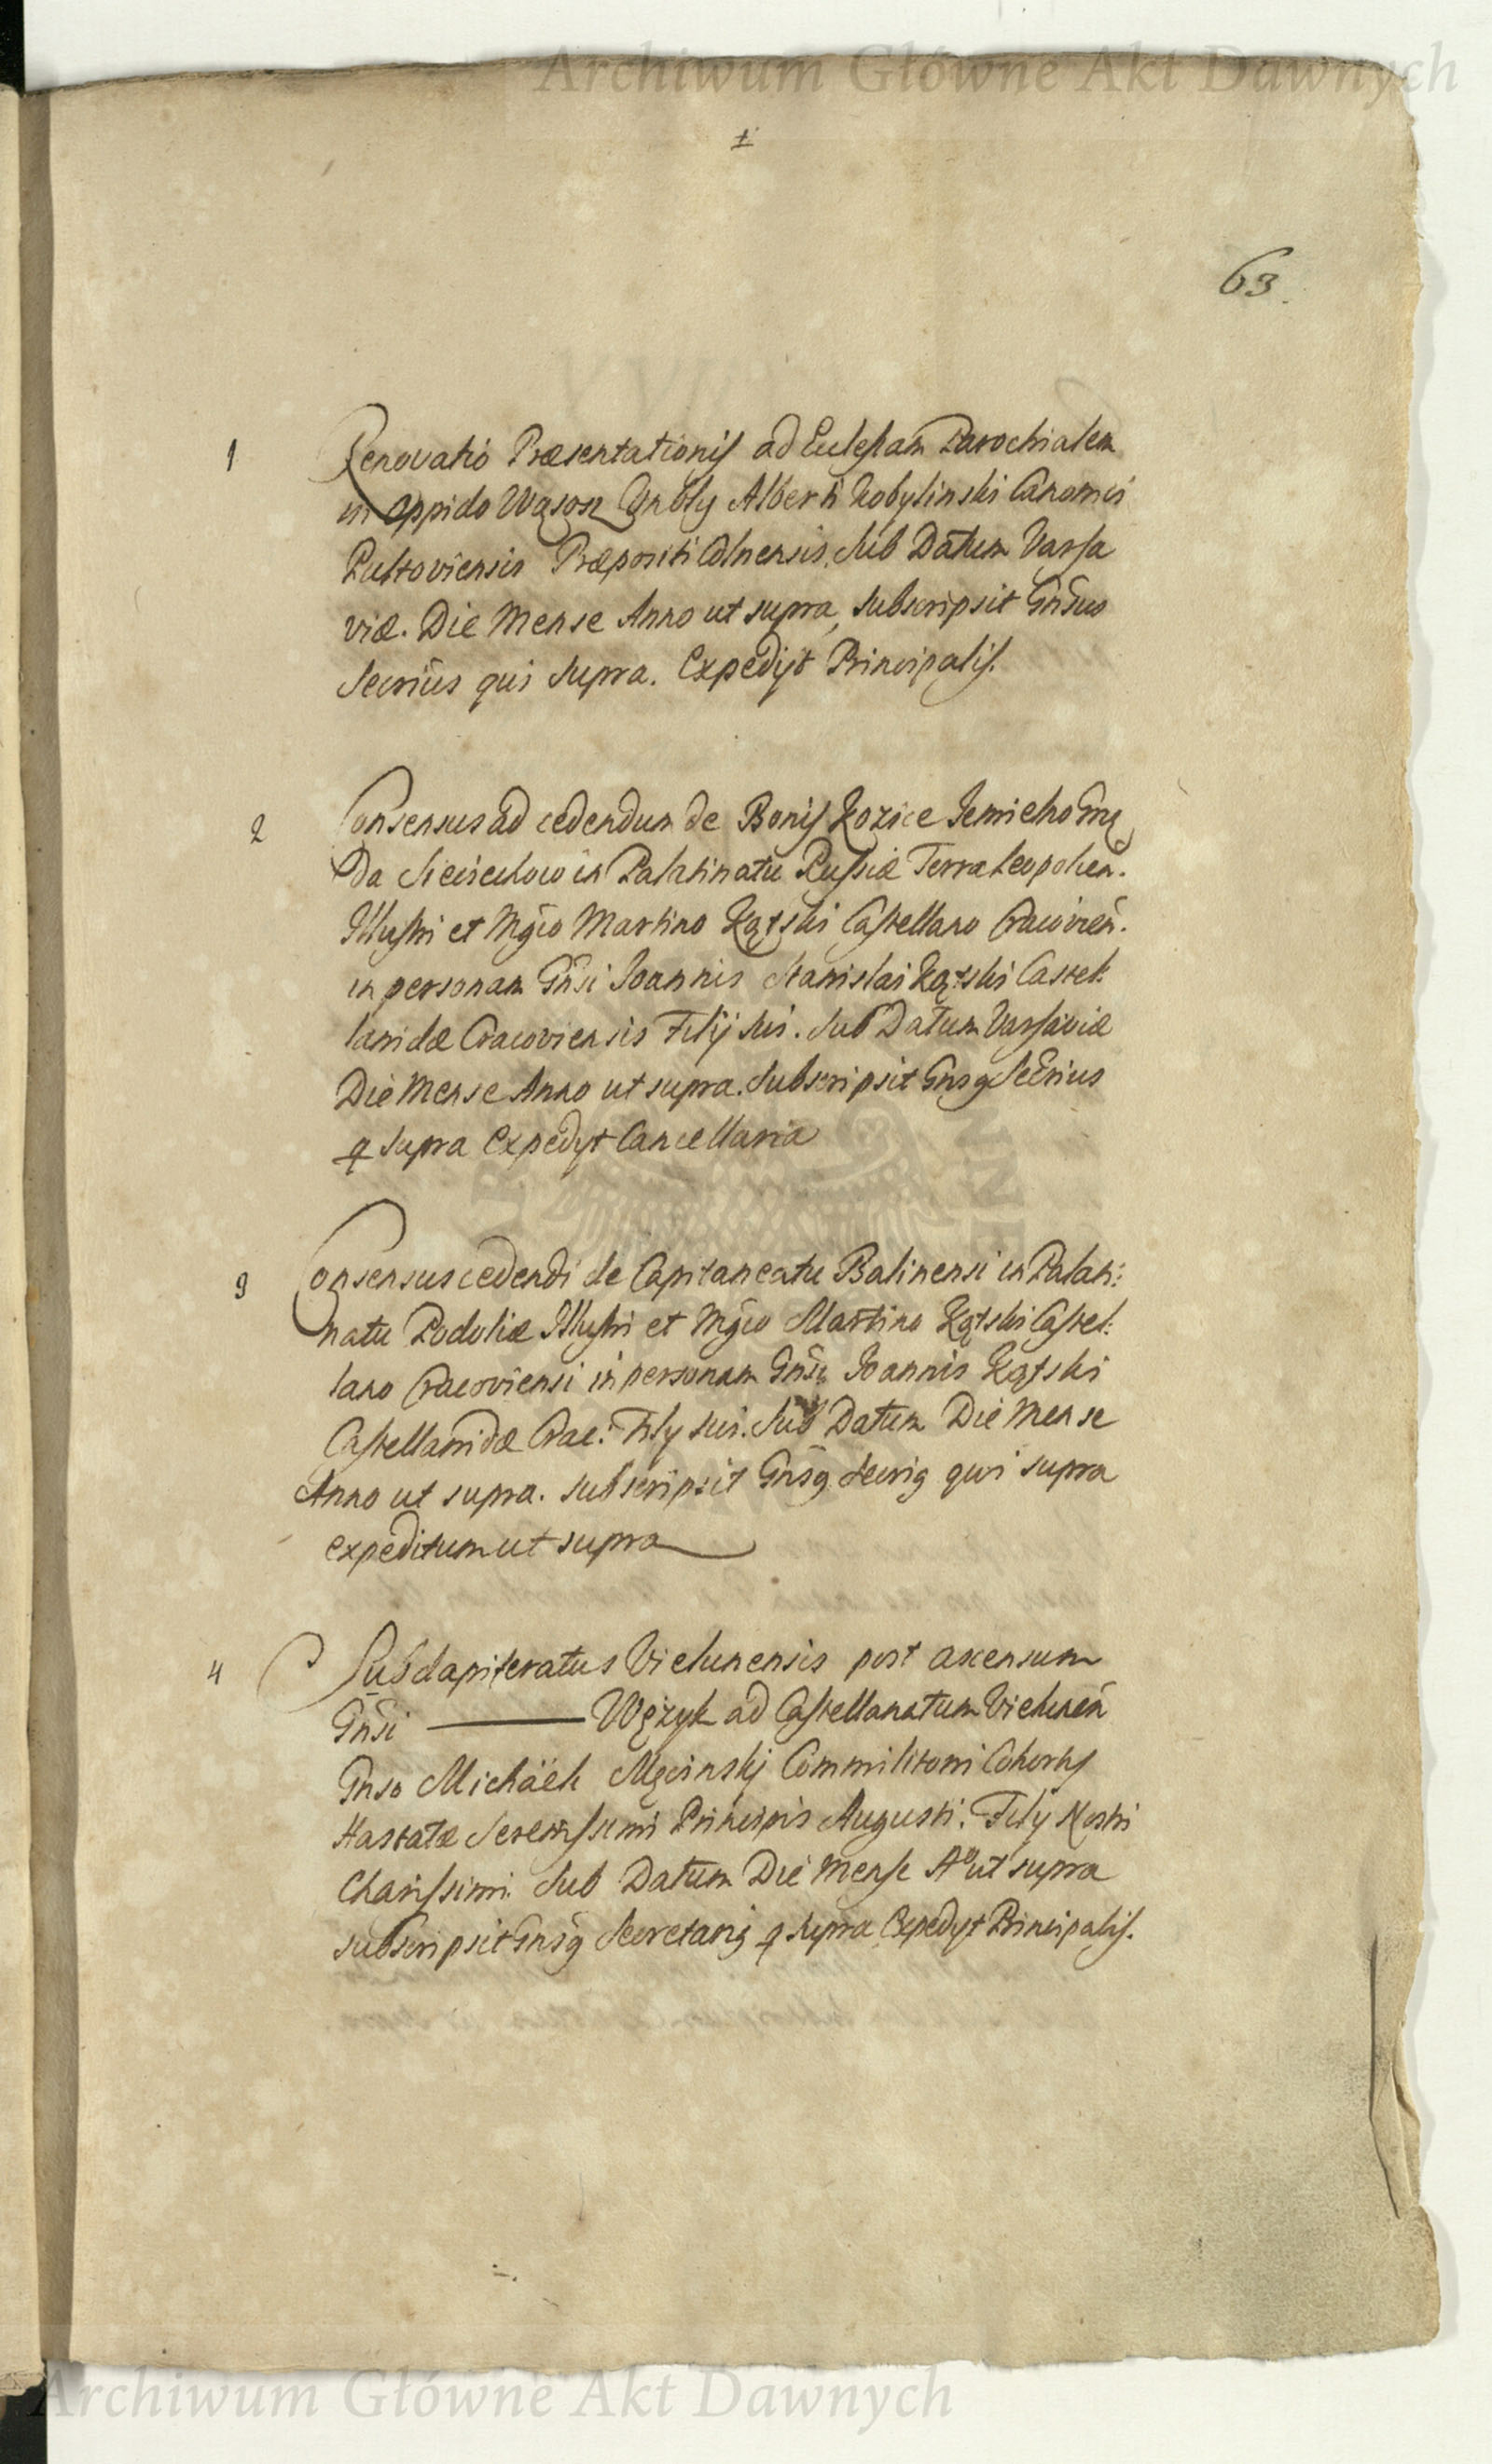 Archiwum Główne Akt Dawnych
63.
1 Renovatio Præsentationis ad Ecclesiam Parochialem
in Oppido Wąsosz Alberti Kobylinski Canonici
Pultoviensis Præpositi Colnensis. Sub Datum Varsa
viæ. Die Mense Anno ut supra, subscripsit Gn̄sus
Secrius qui supra. Expedijt Principalis.
2 Consensus ad cedendum de Bonis Kozice
in Palatinatu Russiæ Terra Leopolien.
Illustri et Mgco Martino Kątski Castellano Cracovien̄.
in personam Gn̄si Joannis Stanislai Kątski Castel:
lanidæ Cracoviensis Filij sui. Sub Datum Varsaviæ
Die Mense Anno ut supra. Subscripsit Gnsg Secrius
q supra Expedyt Cancellaria
3 Consensus cedendi de Capitaneatu Balinensi in Palati:
natu Podoliæ Illustri et Mgco Martino Kątski Castel:
lano Cracoviensi in personam Gn̄si Joannis Kątski
Castellanidæ Crac: Fily sui. Sub Datum Die Mense
Anno ut supra. subscripsit Gn̄sg Secrig qui supra
expeditum ut supra
4 Subdapiferatus Vielunensis post ascensum
Gn̄si ——— Wężyk ad Castellanatum Vielunen̄
Gnso Michäeli Męcinskj Commilitoni Cohortis
Hastatæ Serenissimi Principis Augusti. Fily Nostri
Charissimi. Sub Datum Die Mense Aº ut supra
subscripsit Gnsg Secretarig q supra Expedyt Principalis.
Archiwum Główne Akt Dawnych